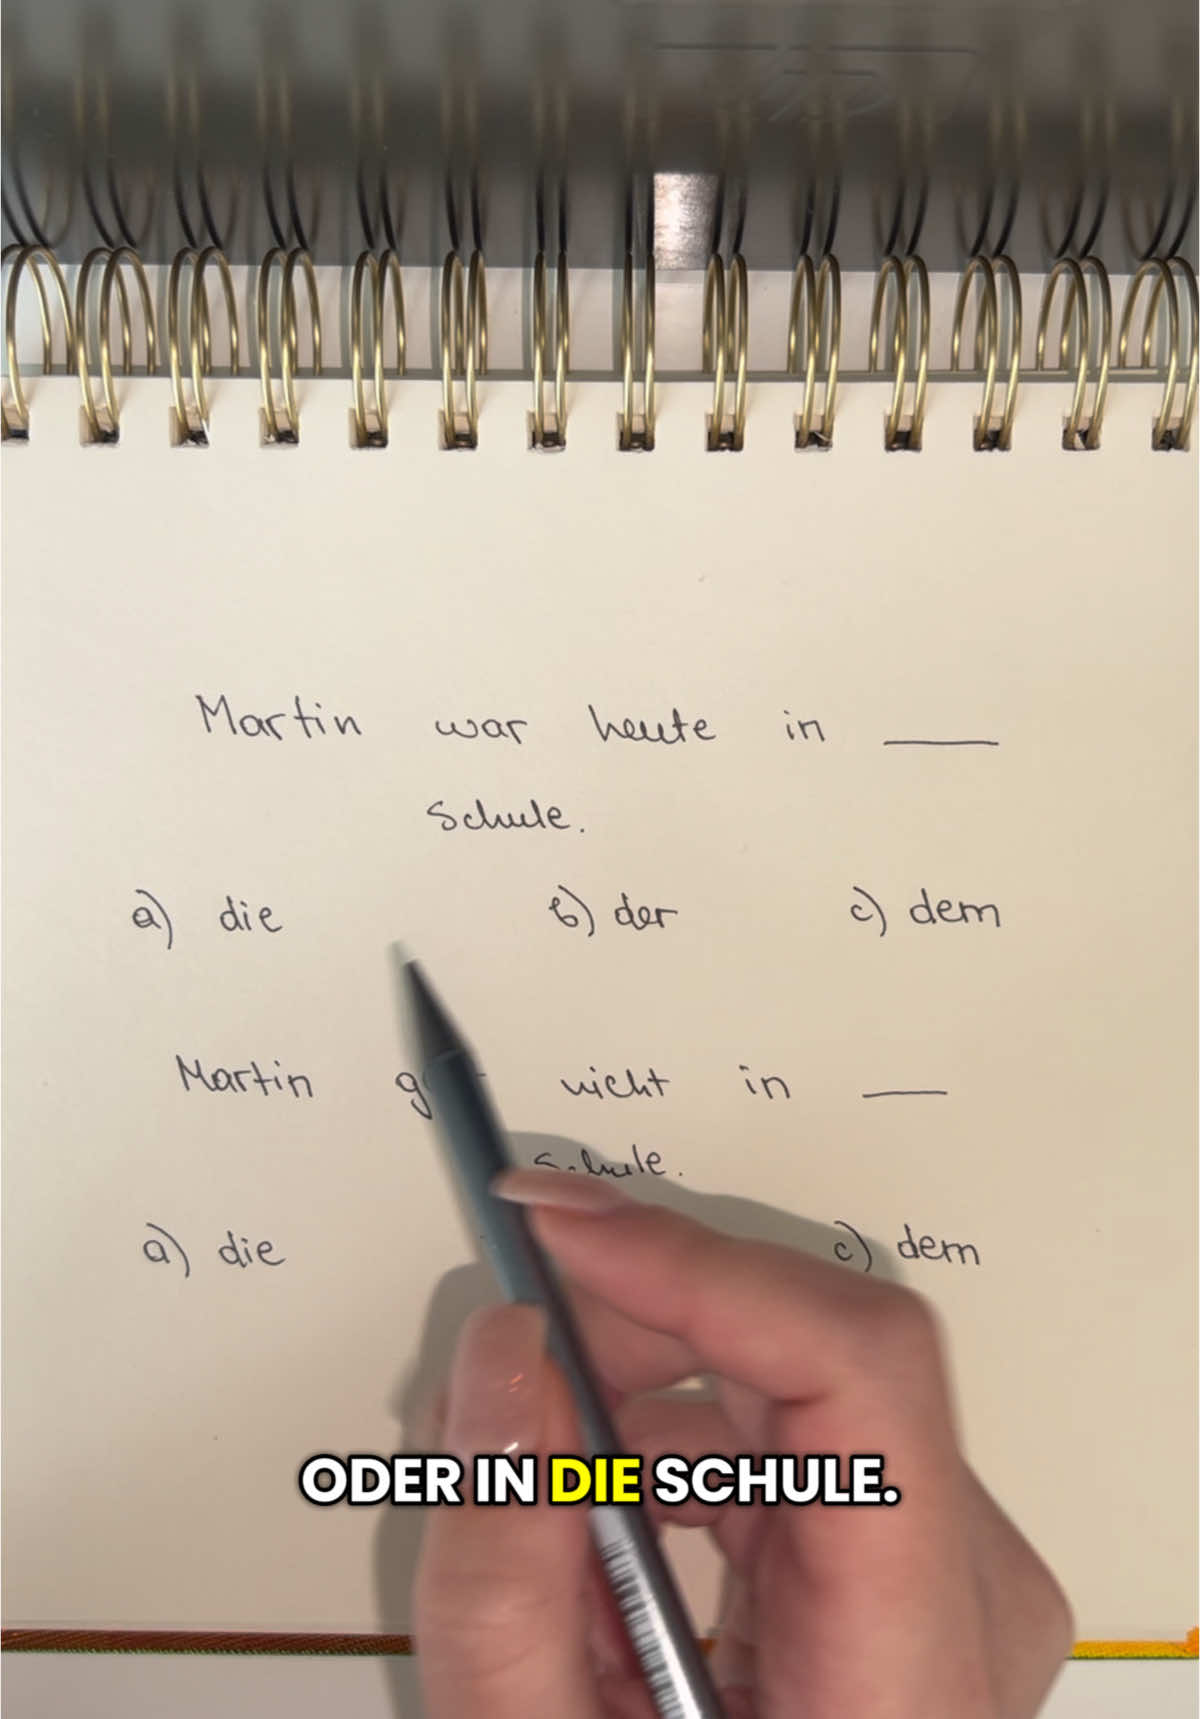 Martin war heute in ____
Schule.
a) die b) der c) dem
Martin nicht in ____
Schule.
a) die c) dem
ODER IN DIE SCHULE.